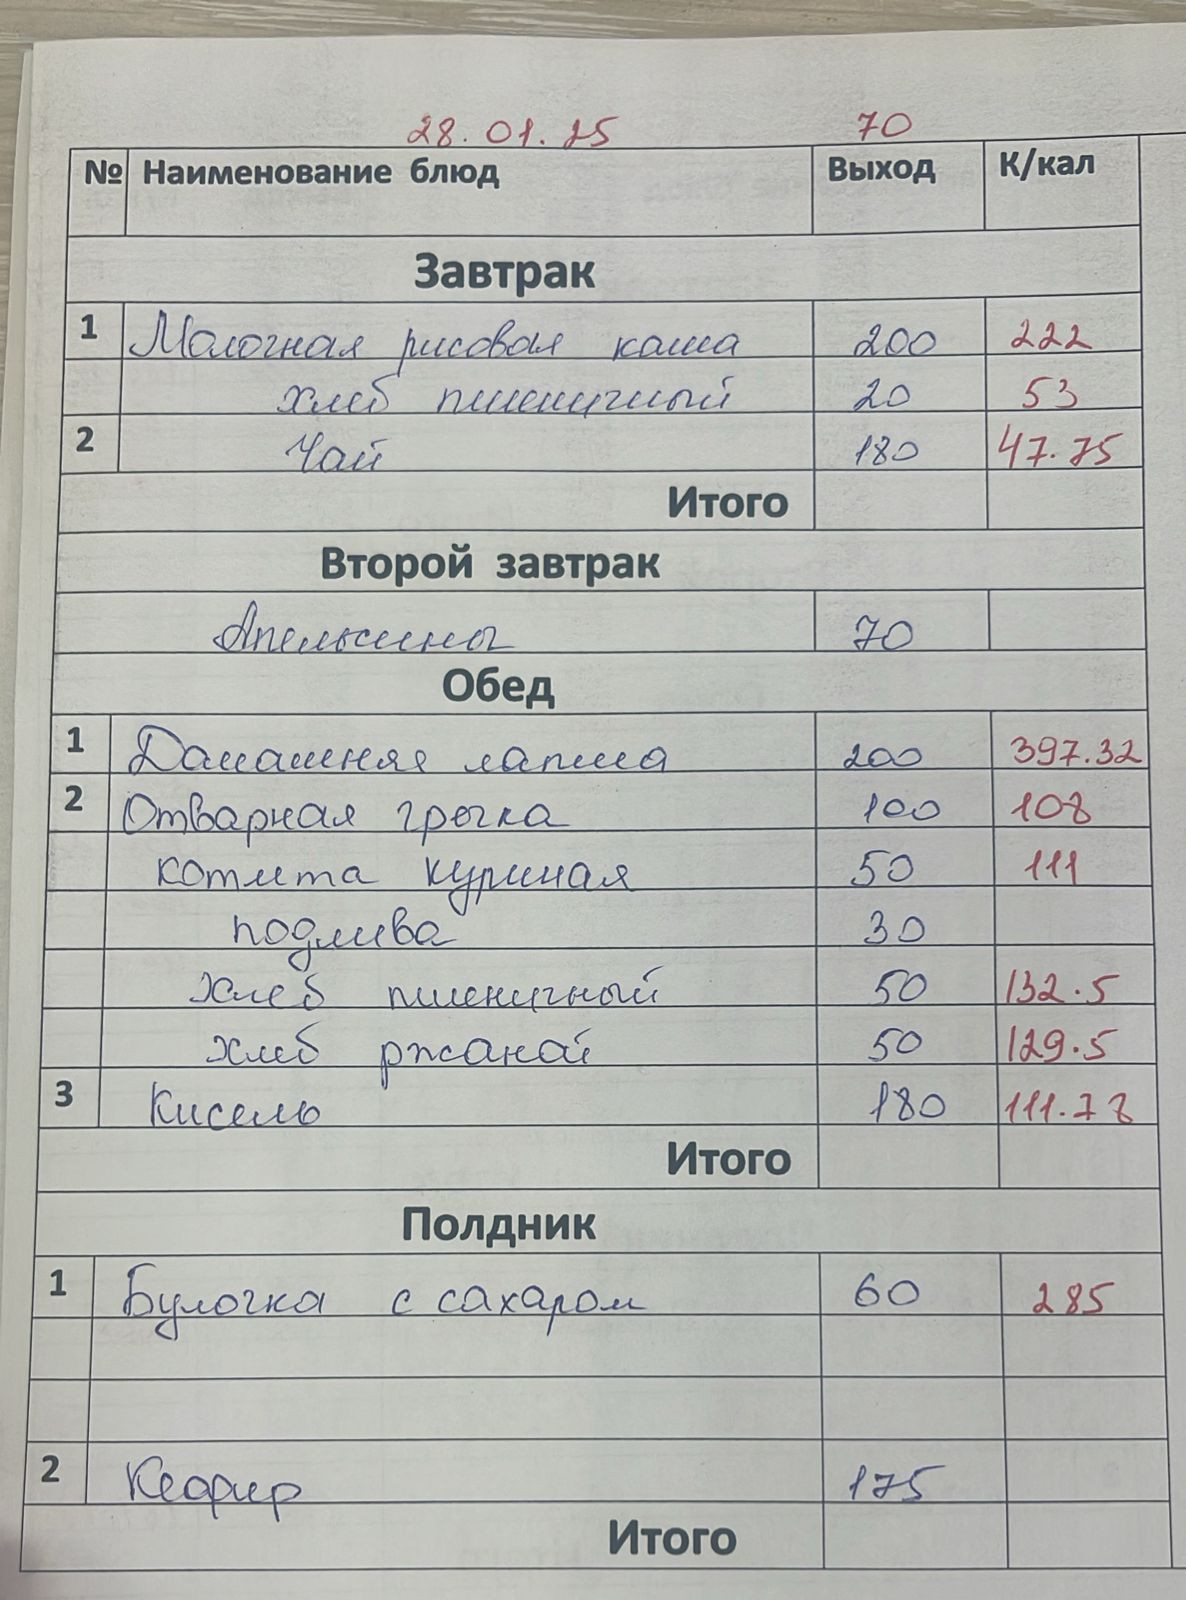 28.01.25 70
№ Наименование блюд Выход К/кал
Завтрак
1 Молочная рисовая каша 200 222
хлеб пшеничный 20 53
2 Чай 180 47.75
Итого
Второй завтрак
Апельсины 70
Обед
1 Дамашняя лапша 200 397.32
2 Отварная гречка 100 108
котлета куриная 50 111
подлива 30
хлеб пшеничный 50 132.5
хлеб ржаной 50 129.5
3 Кисель 180 111.78
Итого
Полдник
1 Булочка с сахаром 60 285
2 Кефир 175
Итого